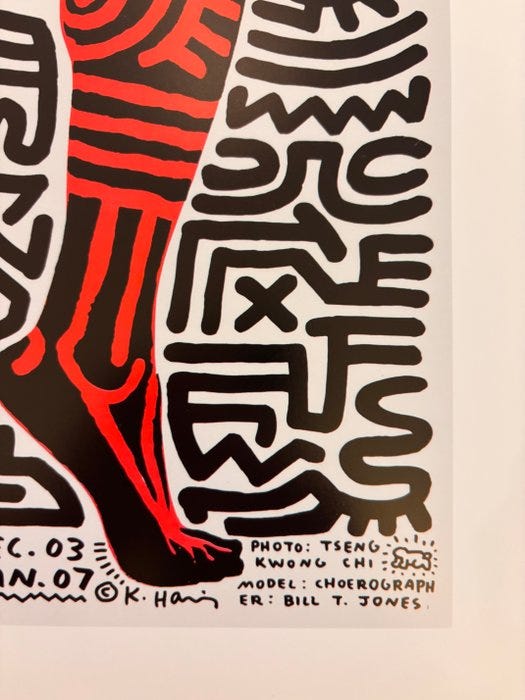 EC. 03
AN. 07
© K. Haring
PHOTO: TSENG
KWONG CHI
MODEL: CHOEROGRAPH
ER: BILL T. JONES.